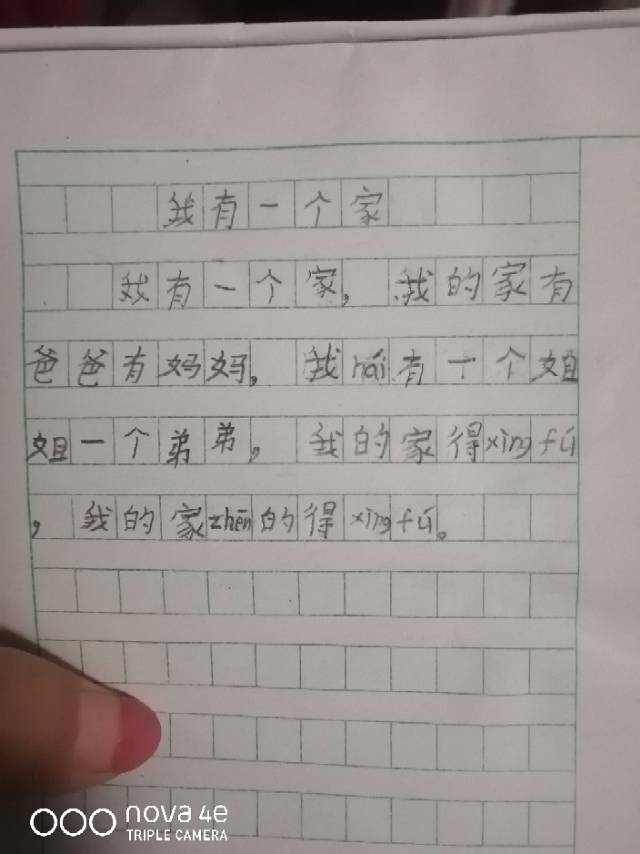 我有一个家
我有一个家，我的家有
爸爸有妈妈，我hái有一个姐
姐一个弟弟，我的家得xìngfú
，我的家zhēn的得xìngfú。
nova 4e
TRIPLE CAMERA